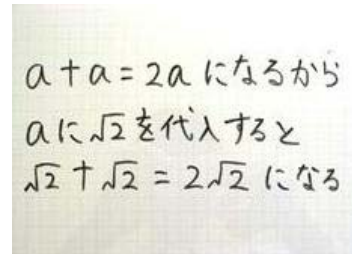 a+a=2aになるから
aに√2を代入すると
√2+√2=2√2になる